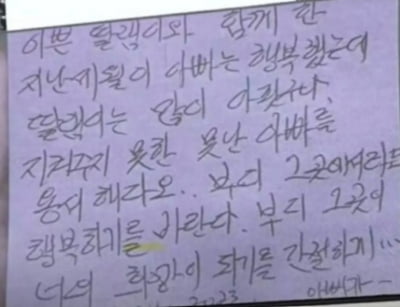 이쁜 딸램이와 함께 한
지난 세월이 아빠는 행복했는데
딸램이는 많이 아팠구나.
지켜주지 못한 못난 아빠를
용서 해다오.. 부디 그곳에서라도
행복하기를 바란다. 부디 그곳이
너의 희망이 되기를 간절하게...
2023 아빠가-